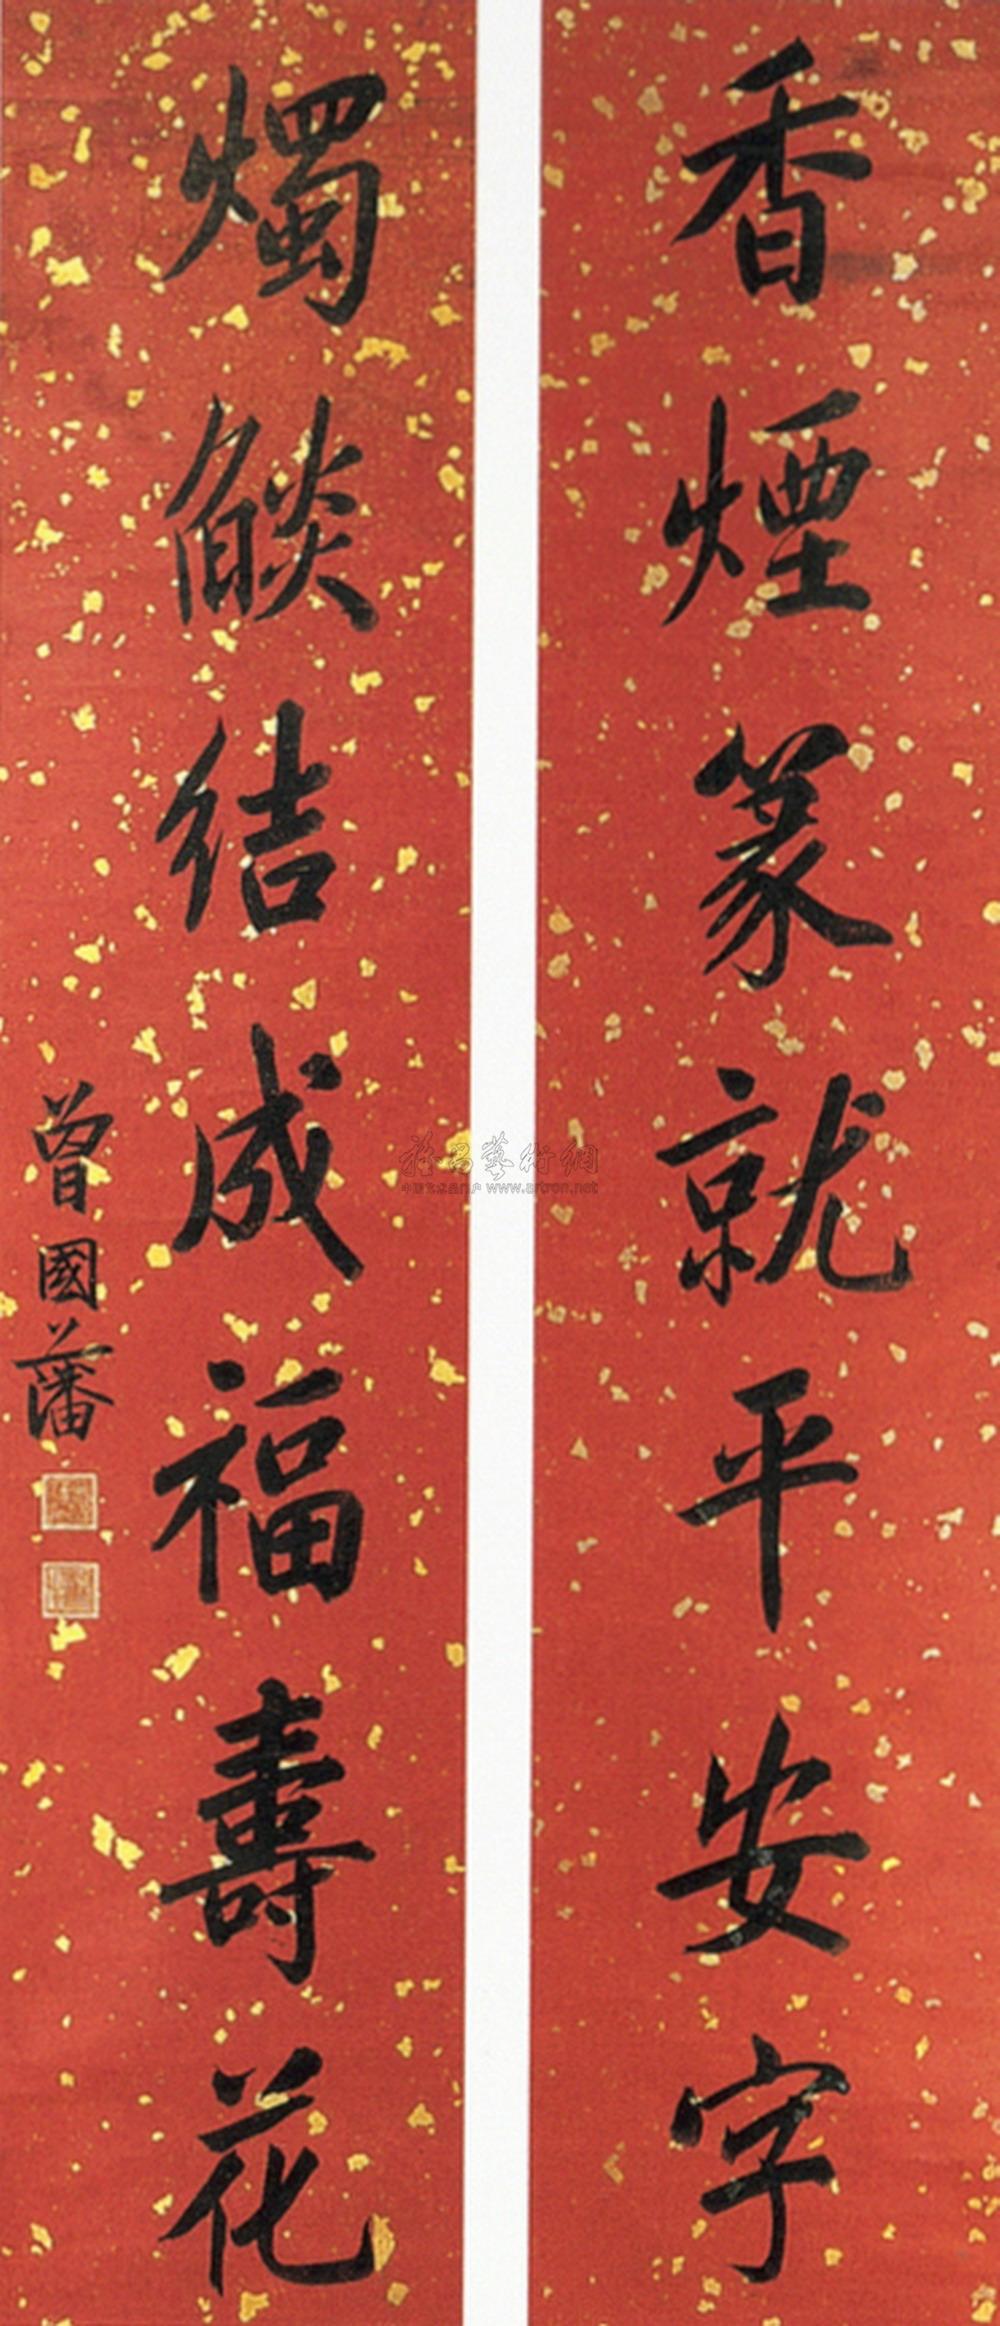 香煙篆就平安字
燭燄結成福壽花
曾國藩
www.artron.net